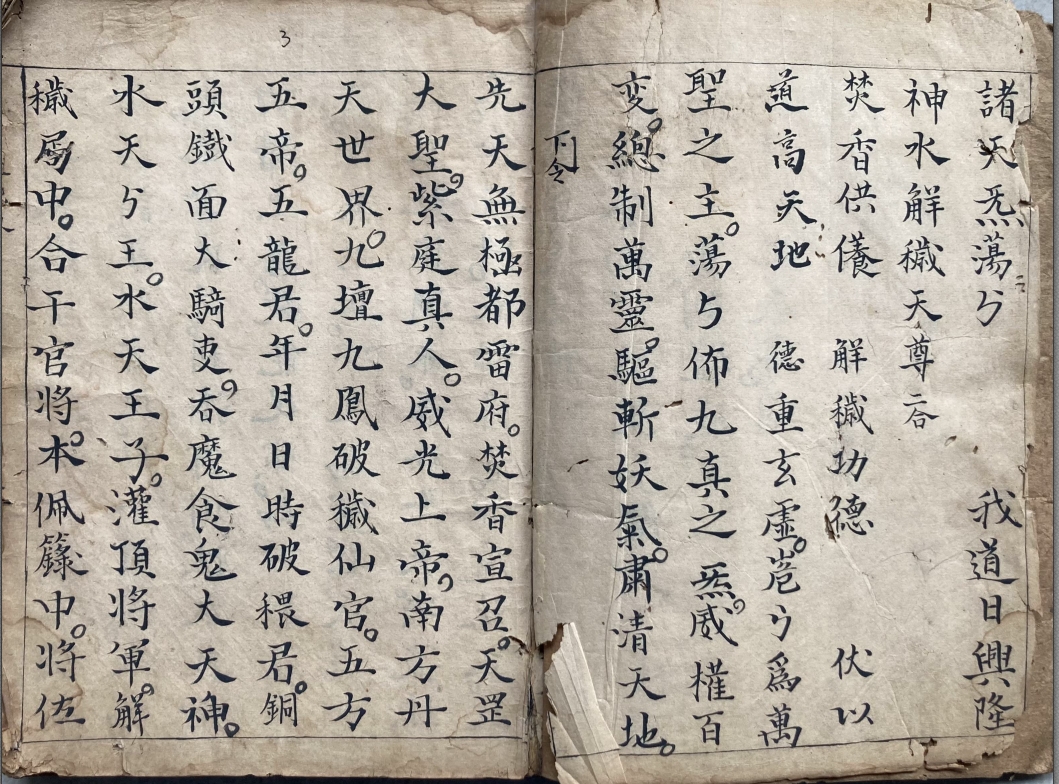 諸天炁蕩ㄣ 我道日興隆
神水解穢天尊 二合
焚香供養 解穢功德 伏以
道高天地 德重玄虛。嵬ㄣ爲萬
聖之主。蕩ㄣ佈九真之炁。威權百
変。總制萬靈。驅斬妖氣。肅清天地。
下令
先天無極都雷府。焚香宣召。天罡
大聖。紫庭真人。威光上帝。南方丹
天世界。九壇九鳳破穢仙官。五方
五帝。五龍君。年月日時破穢君。銅
頭鐵面大騎吏。吞魔食鬼大天神。
水天ㄣ王。水天王子。灌頂將軍。解
穢局中。合干官将。本佩籙中。将佐
3